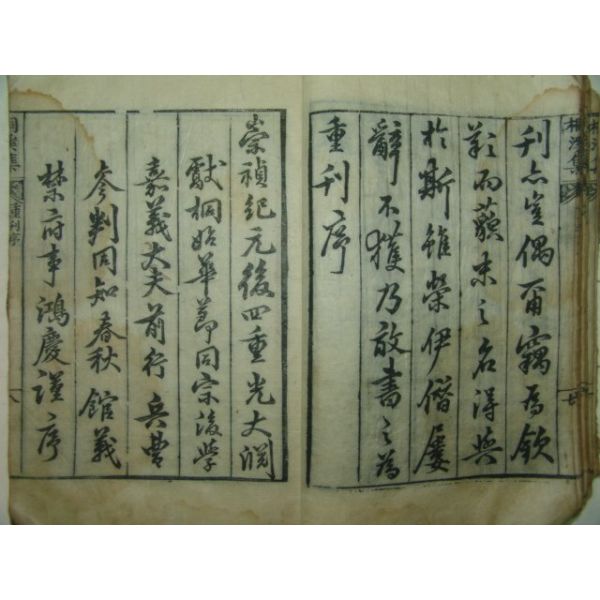 刊亦豈偶爾竊爲欽
歎而蕪末之名得與
於斯雖榮伊僭屢
辭不獲乃敢書之爲
重刊序
崇禎紀元後四重光大淵
獻桐始華節同宗後學
嘉義大夫前行兵曹
參判同知春秋館義
禁府事鴻慶謹序
集 重刊序 八